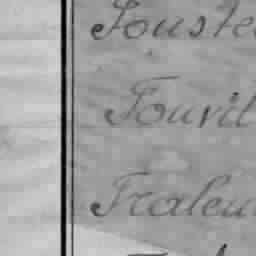 Fouste
Fouvil
Fraleu